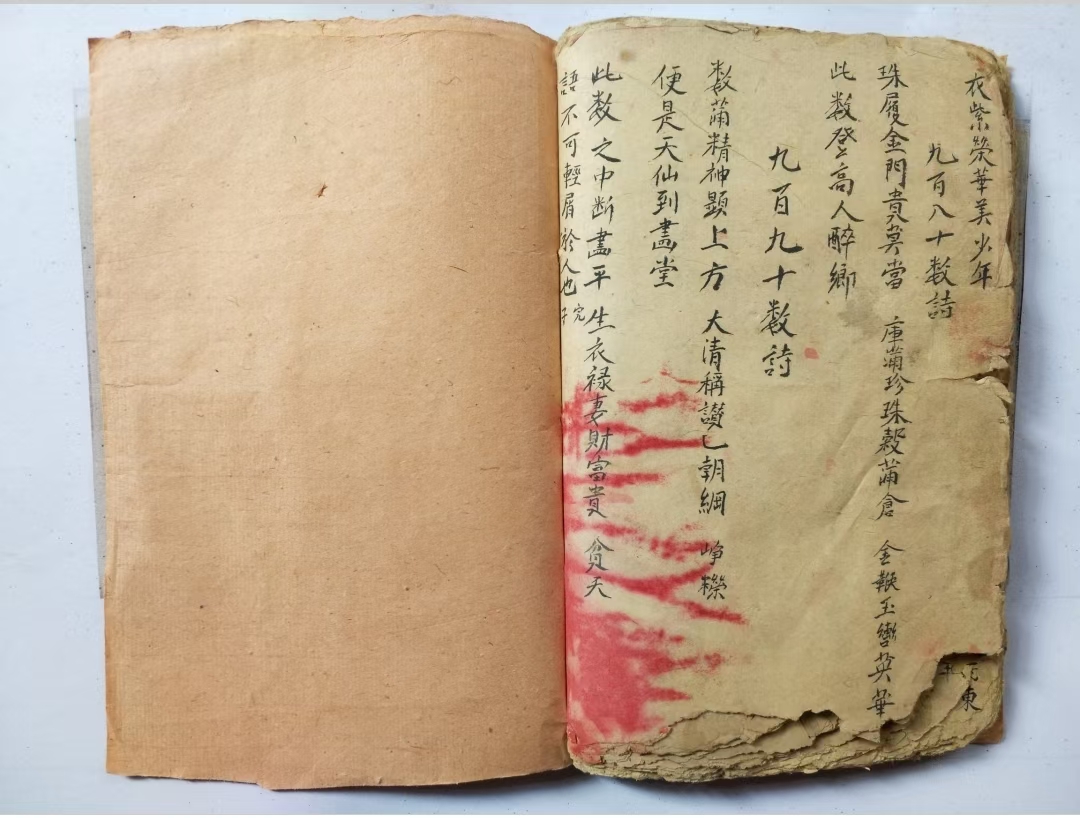 衣紫榮華美少年
九百八十数詩
珠履金門貴莫當 庫滿珍珠穀滿倉 金鞭玉轡英華
此数登高人醉鄉
九百九十数詩
数滿精神顯上方 大清稱讃乚朝綱 崢嶸
便是天仙到畫堂
此数之中断盡平生衣禄妻財富貴 貧夭
語不可輕屑於人也 完